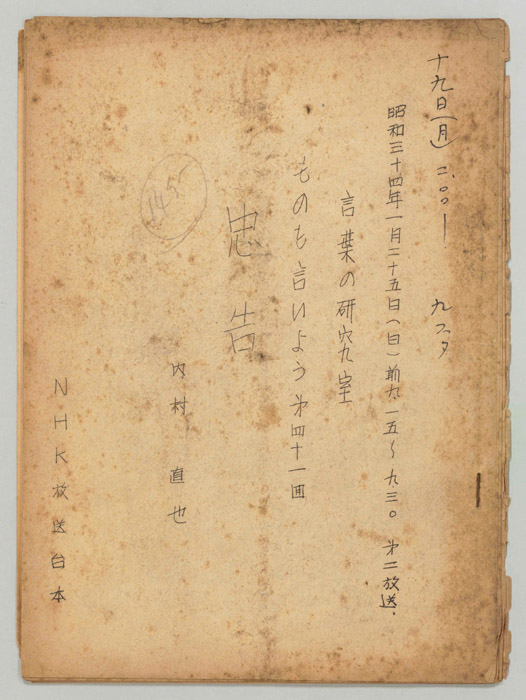 十九日(月) 二.〇〇— 九スタ
昭和三十四年一月二十五日(日)前九.一五〜九.三〇 第二放送.
言葉の研究室
ものも言いよう 第四十一回
忠告
145
内村 直也
NHK放送台本